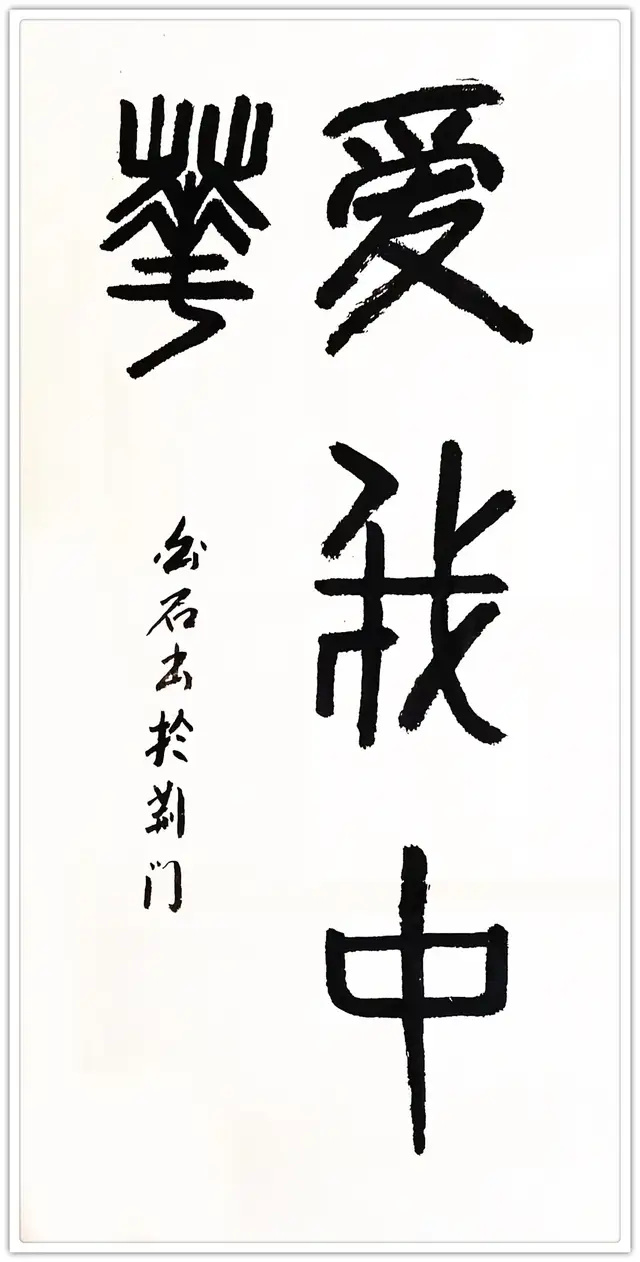 爱我中
華
石书於荆门